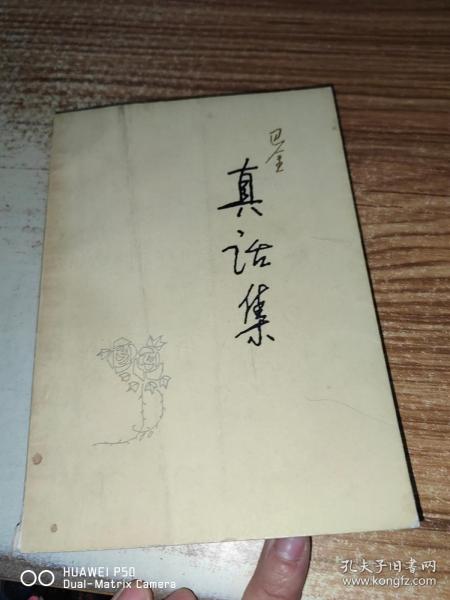 巴金
真话集
HUAWEI P50
Dual-Matrix Camera
孔夫子旧书网
www.kongfz.com